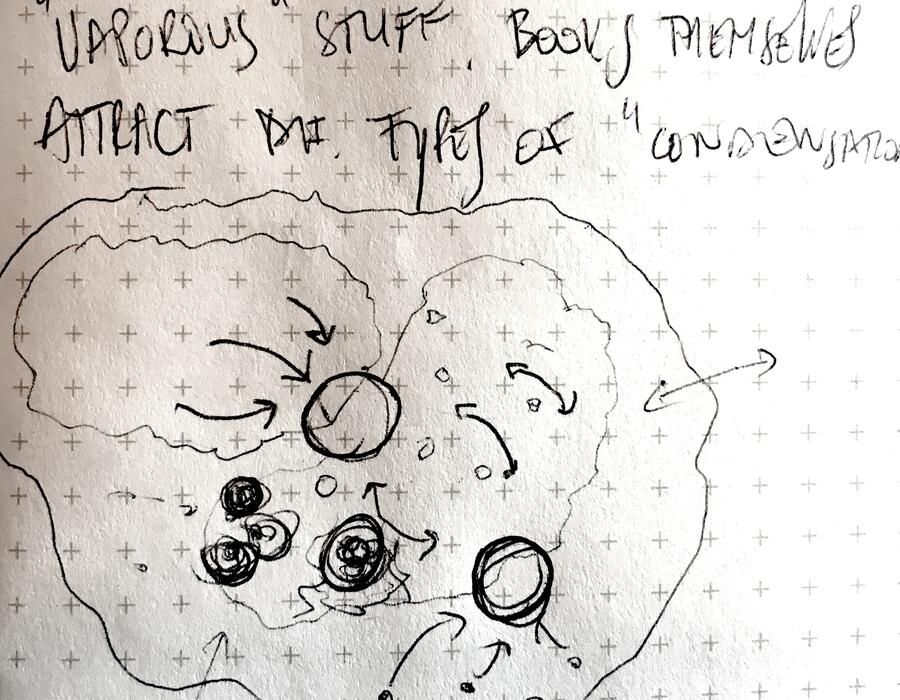 "VAPOROUS" STUFF. BOOKS THEMSELVES
ATTRACT DIF. TYPES OF "CONDENSATO